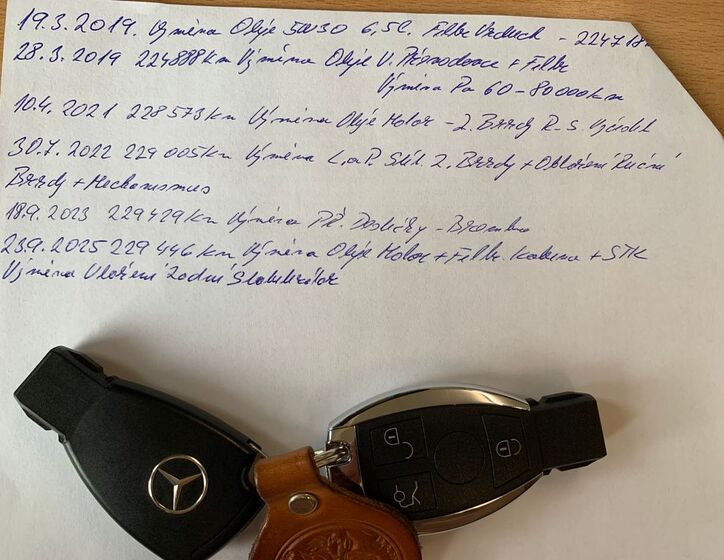 19.3.2019. Výměna Oleje 5W30 6,5l. Filtr Vzduch - 2247
28.3.2019 224888km Výměna Oleje V. Převodovce + Filtr
Výměna Po 60-80000km
10.4.2021 228573km Výměna Oleje Motor - Z. Brzdy R-S.
30.7.2022 229005km Výměna L.aP. Z. Brzdy + Obložení Ruční
Brzdy + Mechanismus
18.9.2023 229429km Výměna Př. Destičky - Brembo
23.9.2025 229446km Výměna Oleje Motor + Filtr. Kabina + STK
Výměna Uložení Zadní Stabilizátor